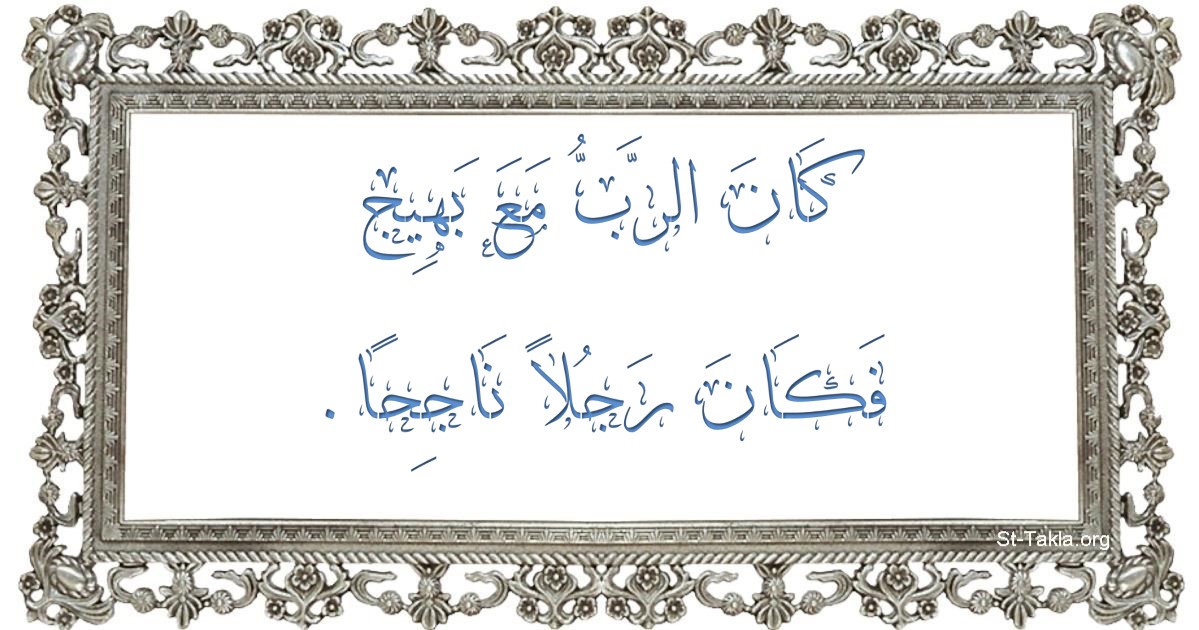 كَانَ الرَّبُّ مَعَ بَهِيِج
فَكَانَ رَجُلاً نَاجِحًا .
St-Takla.org